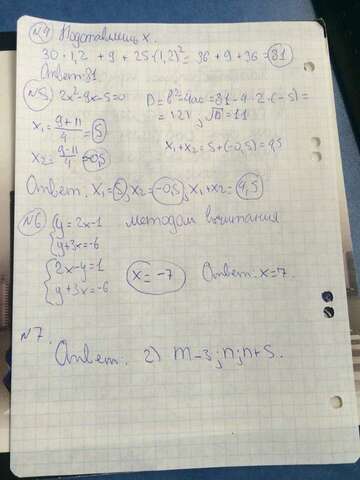 №4 Подставлишь X.
30·1,2 + 9 + 25·(1,2)² = 36 + 9 + 36 = 81
Ответ: 81
№5) 2x²-9x-5=0 D = b²-4ac = 81-4·2·(-5) =
= 121; √D = 11
x₁ = (9+11)/4 = 5
x₂ = (9-11)/4 = -0,5 x₁+x₂ = 5+(-0,5) = 4,5
Ответ: x₁=5; x₂=-0,5; x₁+x₂=4,5
№6 {y=2x-1 методом вычитания
{y+3x=-6
{2x-y=1 x=-7 Ответ: x=7.
{y+3x=-6
№7.
Ответ: 2) m-3; n; n+5.